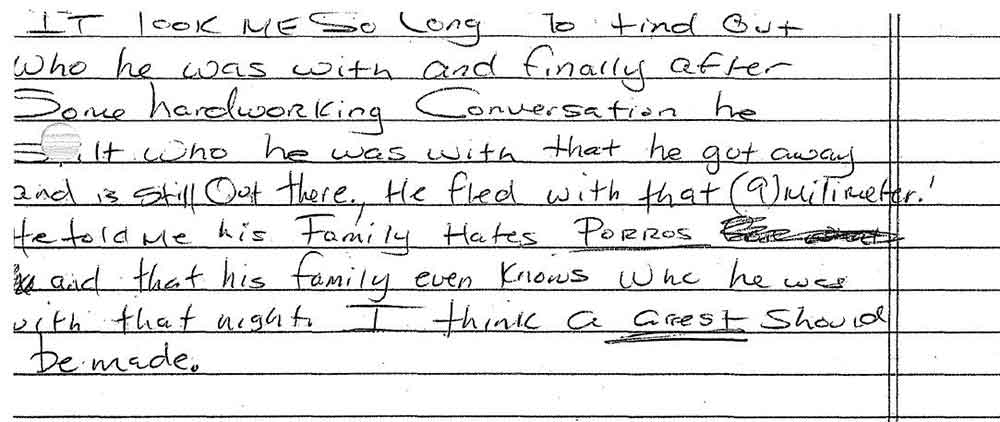 IT took ME So Long To find Out
Who he was with and finally after
Some hardworking Conversation he
who he was with that he got away
and is still Out there., He fled with that (9) milimeter.'
He told me his Family Hates PORROS
and that his family even Knows Who he was
with that night. I think a arrest Should
be made.